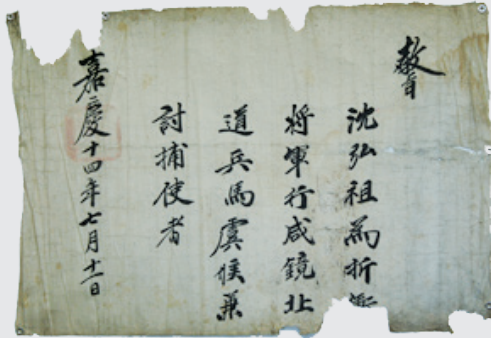 教旨
沈弘祖為折衝
将軍行咸鏡北
道兵馬虞候兼
討捕使者
嘉慶十四年七月十二日